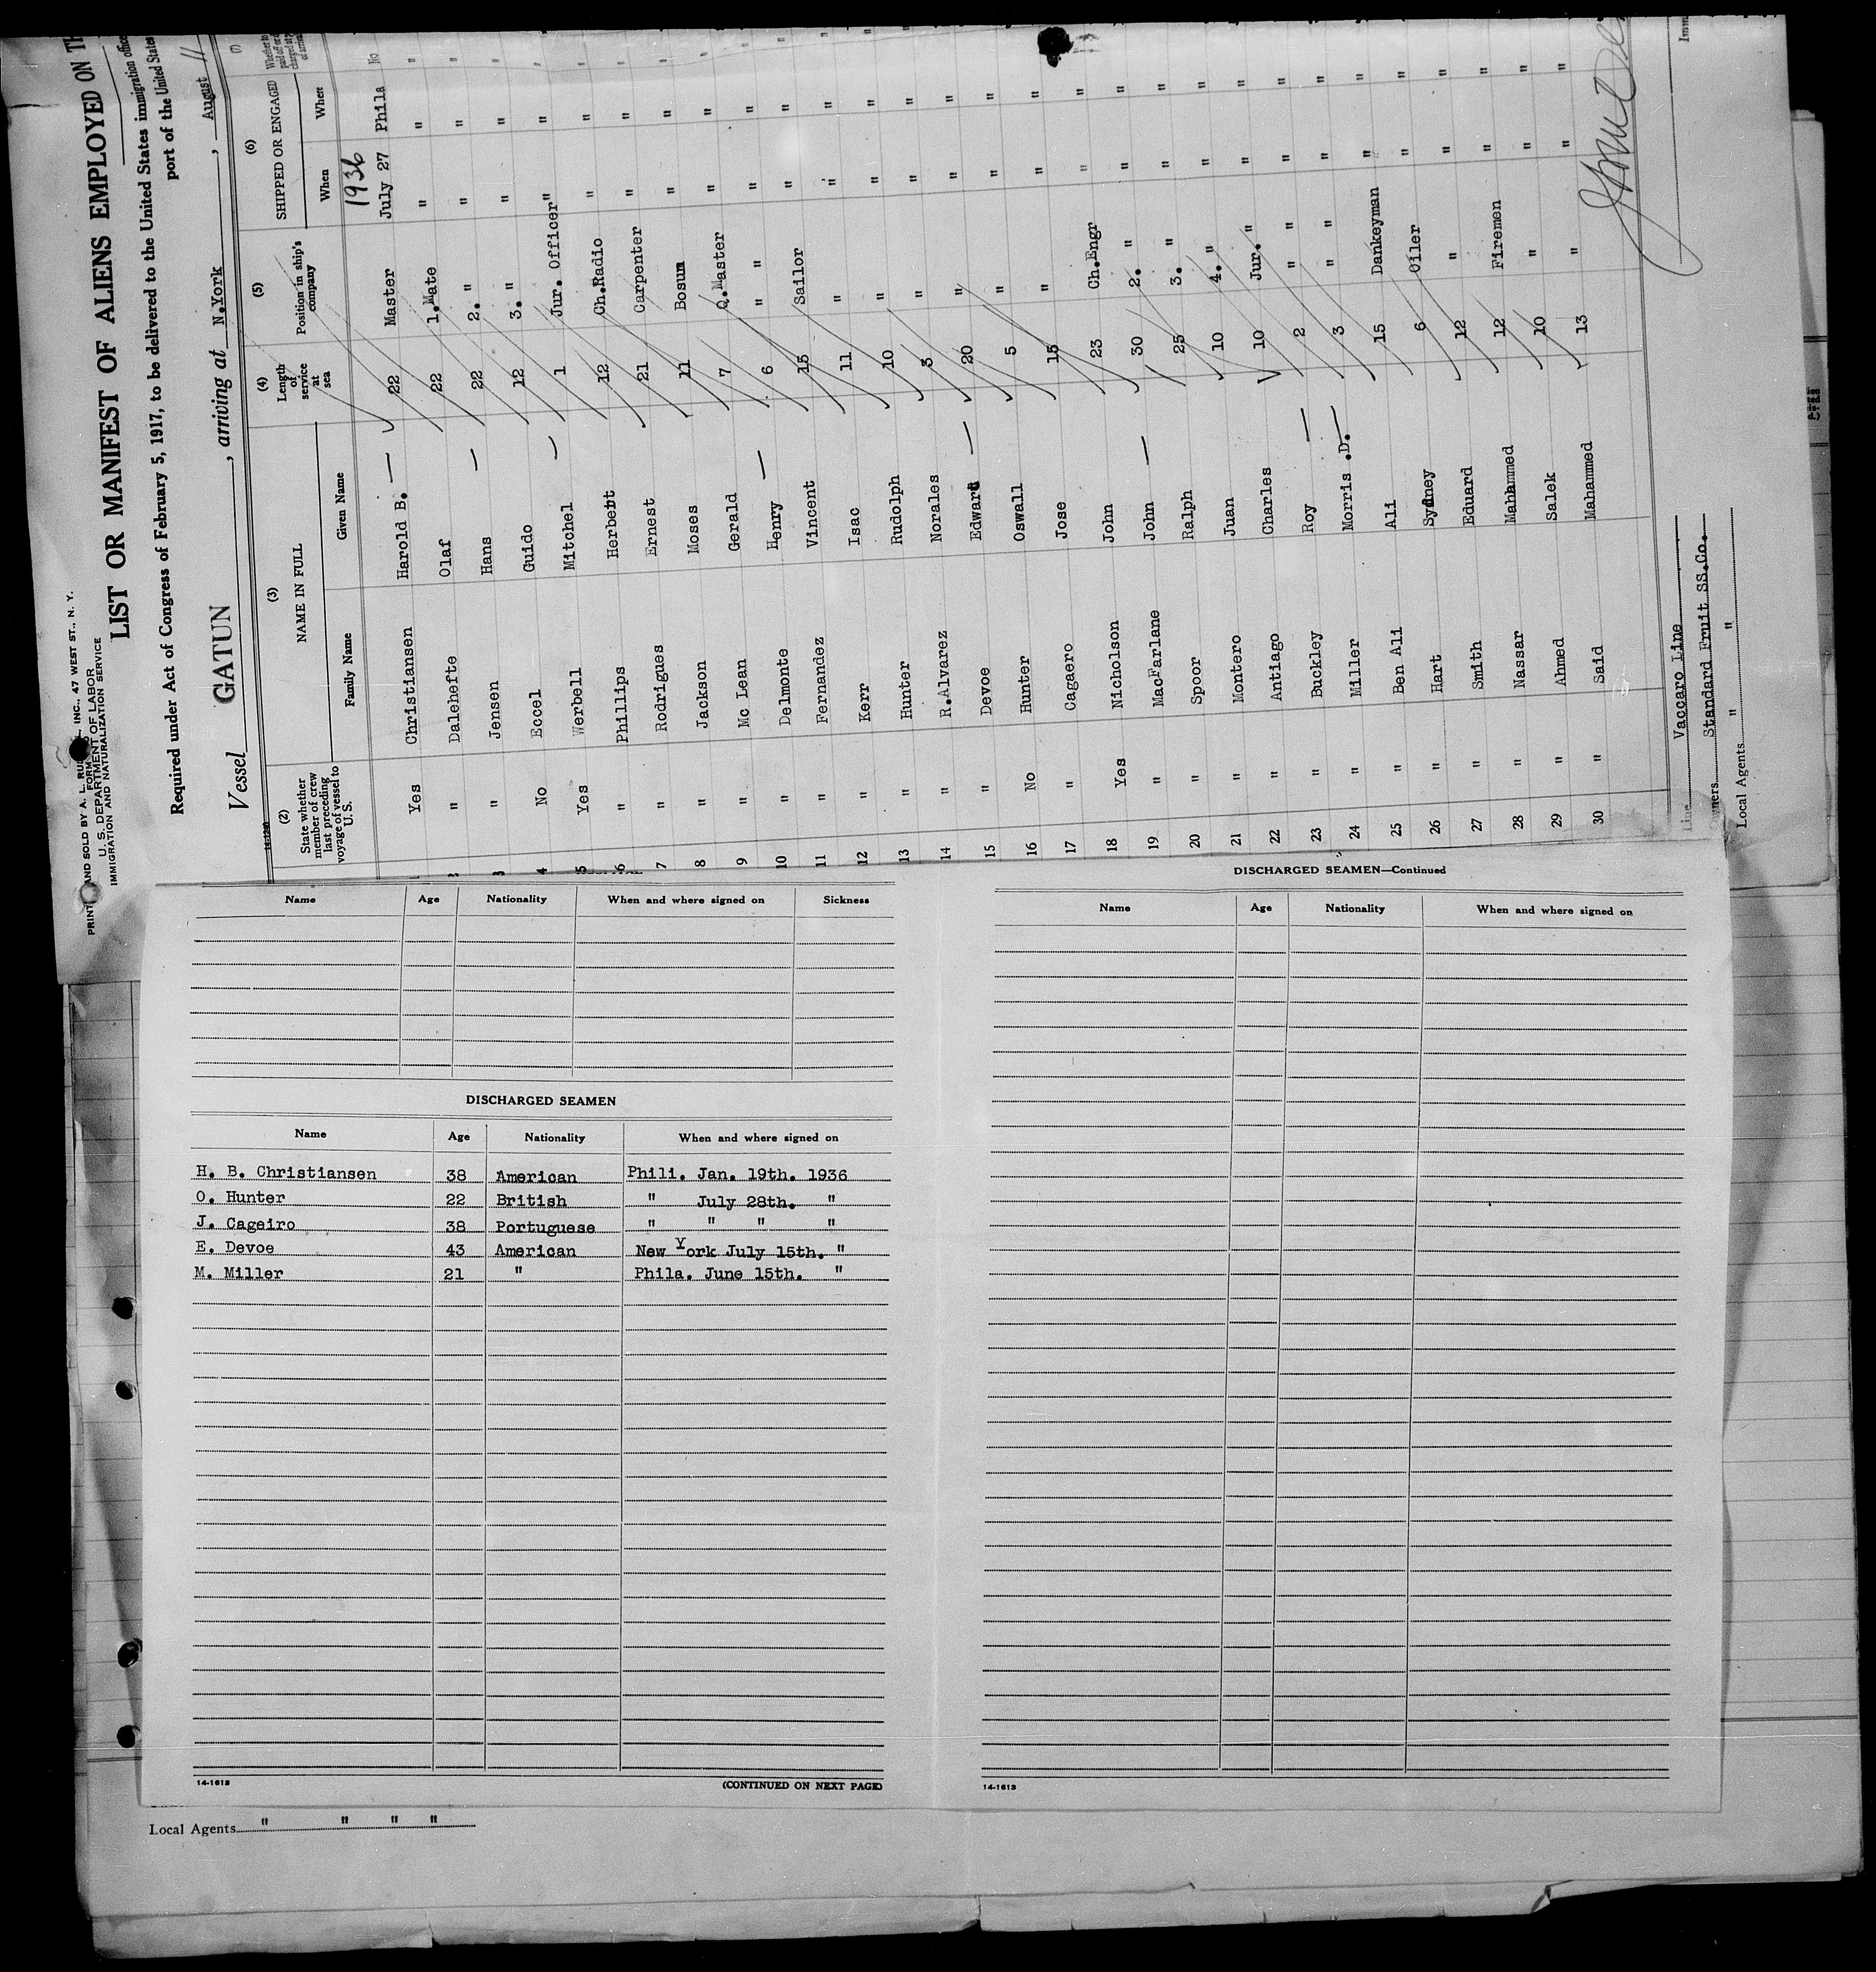 PRINT AND SOLD BY A. L. INC., 47 WEST ST., N. Y.
FORM
U. S. DEPARTMENT OF LABOR
IMMIGRATION AND NATURALIZATION SERVICE
LIST OR MANIFEST OF ALIENS EMPLOYED ON
Required under Act of Congress of February 5, 1917, to be delivered to the United States immigration
port of the United States
Vessel GATUN, arriving at N.York, August 11
(2) (3) (4) (5) (6) (7)
State whether member of crew last preceding voyage of vessel to U. S. NAME IN FULL Length of service at sea Position in ship's company SHIPPED OR ENGAGED
Family Name Given Name When Where
1936
Yes Christiansen Harold B. — 22 Master July 27 Phila No
2 " Dalehefte Olaf 22 1.Mate " " "
3 " Jensen Hans — 22 2. " " " "
4 No Eccel Guido 12 3. " " " "
5 Yes Werbell Mitchel — 1 Jur. Officer " " "
6 " Phillips Herbert 12 Ch.Radio " " "
7 " Rodrigues Ernest 21 Carpenter " " "
8 " Jackson Moses 11 Bosun " " "
9 " Mc Lean Gerald 7 Q.Master " " "
10 " Delmonte Henry — 6 " " " "
11 " Fernandez Vincent 15 Sailor " " "
12 " Kerr Isac 11 " " " "
13 " Hunter Rudolph 10 " " " "
14 " R.Alvarez Norales 3 " " " "
15 " Devoe Edward — 20 " " "
16 No Hunter Oswall 5 " " "
17 " Cagaero Jose 15 " " "
18 Yes Nicholson John 23 Ch.Engr " "
19 " MacFarlane John — 30 2. " " "
20 " Spoor Ralph 25 3. " " "
21 " Montero Juan 10 4. " " "
22 " Antiago Charles 10 Jur. " " "
23 " Buckley Roy — 2 " " " "
24 " Miller Morris .D. — 3 " " " "
25 " Ben Ali Ali 15 Dankeyman " "
26 " Hart Sydney 6 Oiler " "
27 " Smith Eduard 12 " " "
28 " Nassar Mahammed 12 Firemen " "
29 " Ahmed Salek 10 " " "
30 " Said Mahammed 13 " " "
Line Vaccaro Line
Owners Standard Fruit SS.Co.
Local Agents " "
Name Age Nationality When and where signed on Sickness
DISCHARGED SEAMEN
Name Age Nationality When and where signed on
H. B. Christiansen 38 American Phili. Jan. 19th. 1936
O. Hunter 22 British " July 28th. "
J. Cageiro 38 Portuguese " " " "
E. Devoe 43 American New York July 15th. "
M. Miller 21 " Phila. June 15th. "
14-1613 (CONTINUED ON NEXT PAGE)
DISCHARGED SEAMEN—Continued
Name Age Nationality When and where signed on
14-1613
Local Agents " " " "